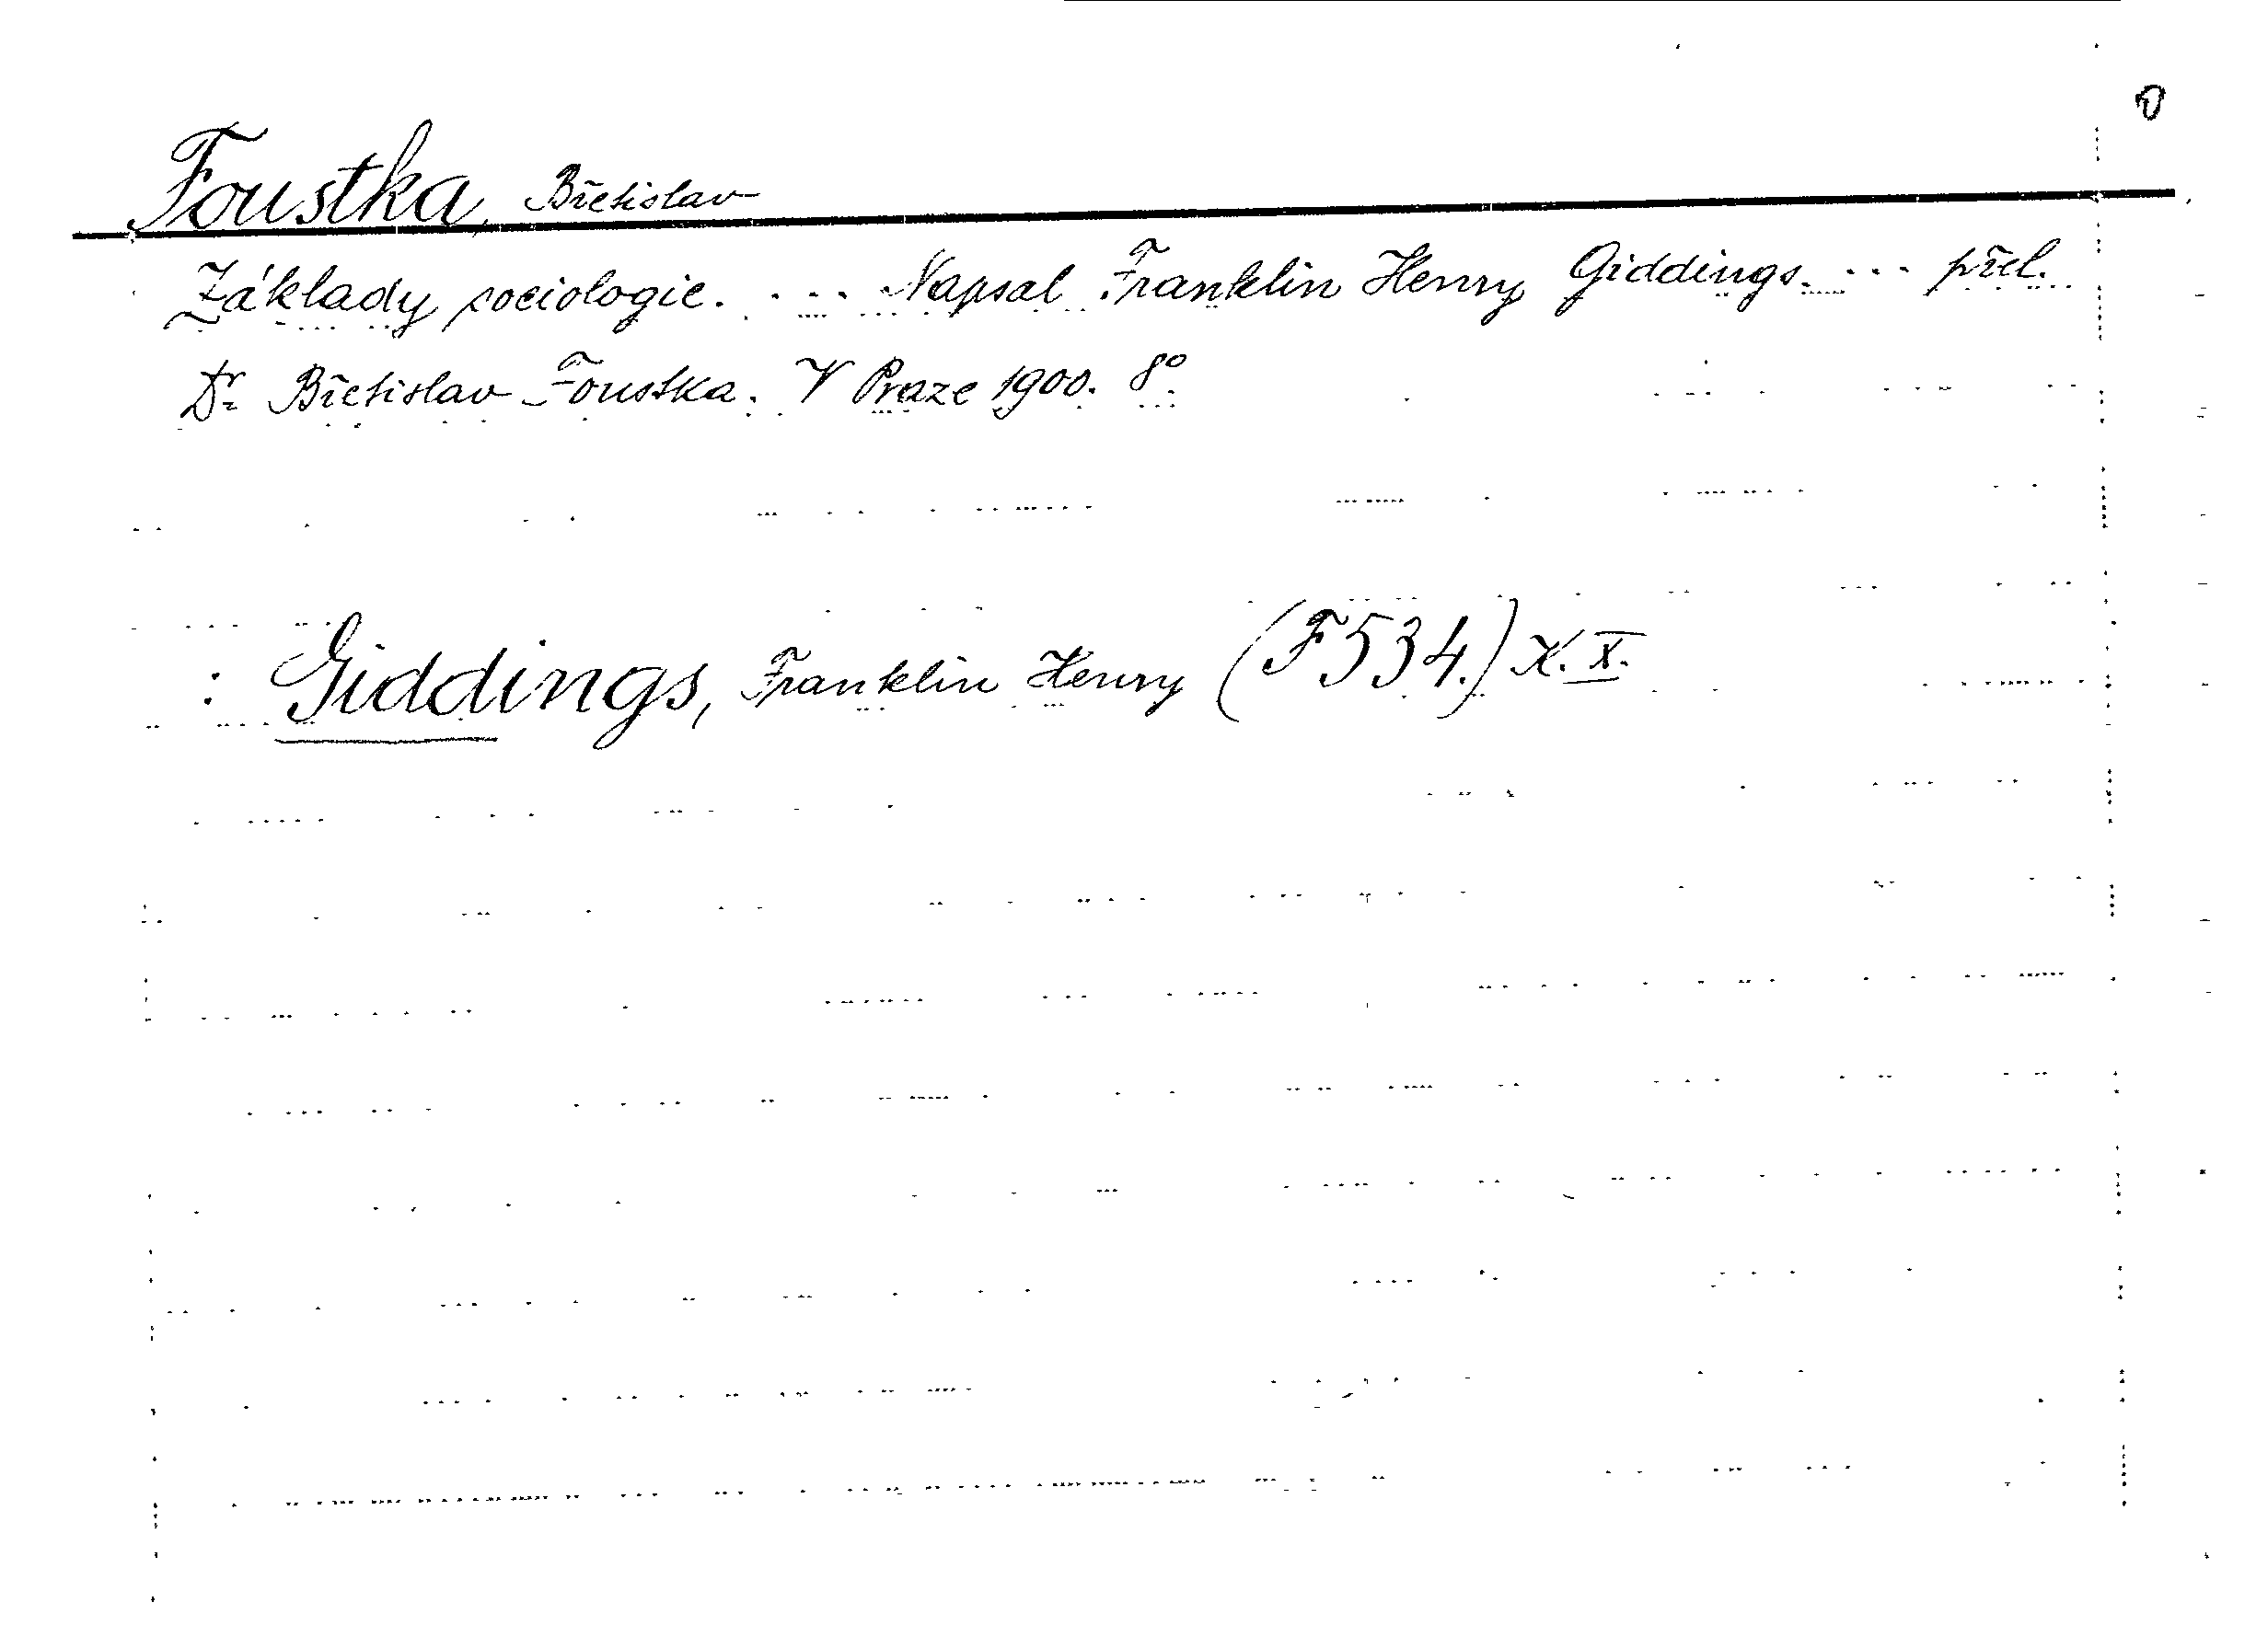 Foustka, Břetislav
Základy sociologie. ... Napsal Franklin Henry Giddings. ... přel.
Dr. Břetislav Foustka. V Praze 1900. 8°.
: Giddings, Franklin Henry (F534.) X.X.